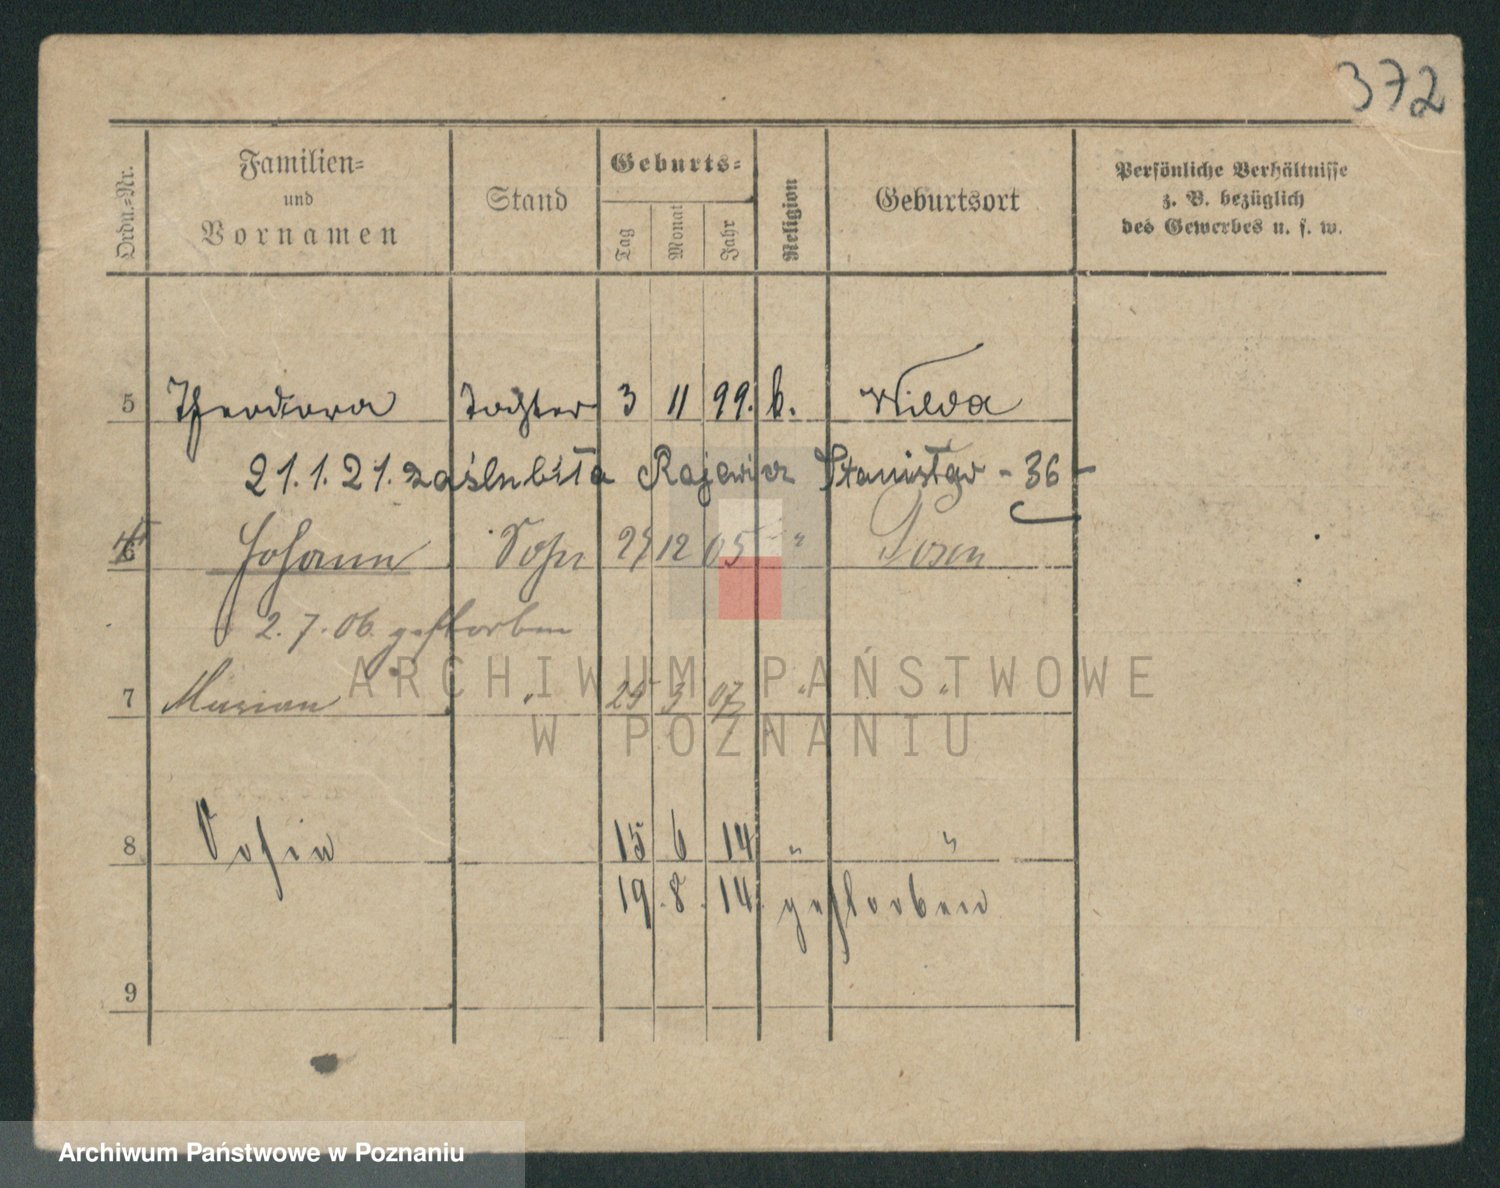 372
Ordn.-Nr.
Familien-
und
Vornamen
Stand
Geburts-
Tag
Monat
Jahr
Religion
Geburtsort
Persönliche Verhältnisse
z. B. bezüglich
des Gewerbes u. s. w.
5 Theodora Tochter 3 11 99. k. Wilda
21.1.21. zaślubiła Rajewicz Stanisław - 36 -
6 Johann Sohn 12 05 " Posen
2. 7. 06. gestorben
7 Marian " 25 3 07 " "
8 Sofia 15 6 14 " "
19. 8. 14. gestorben
9
ARCHIWUM PAŃSTWOWE
W POZNANIU
Archiwum Państwowe w Poznaniu